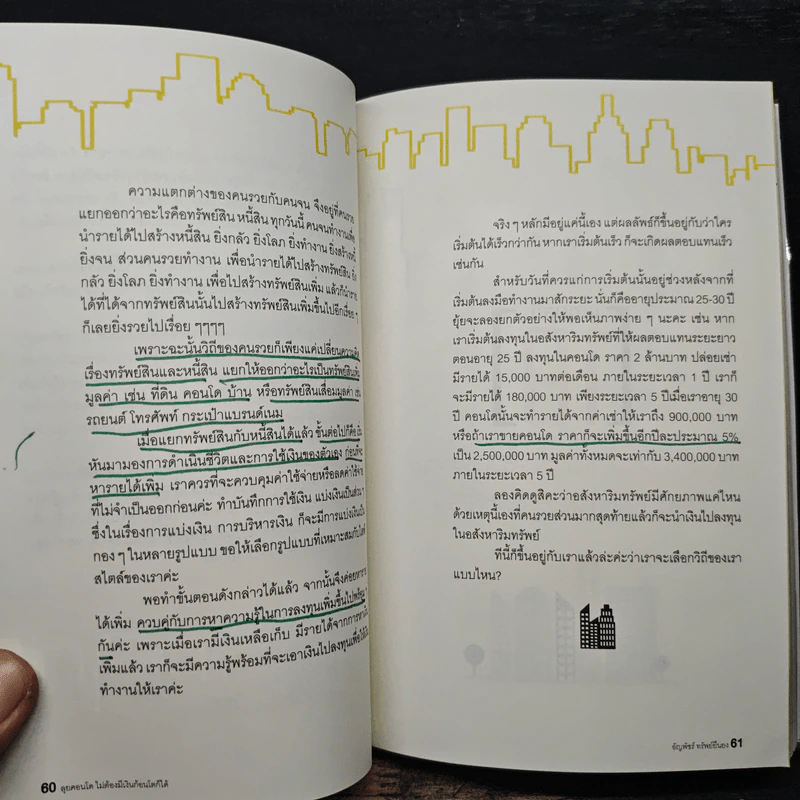 ความแตกต่างของคนรวยกับคนจน จึงอยู่ที่คนรวย
แยกออกว่าอะไรคือทรัพย์สิน หนี้สิน ทุกวันนี้ คนจนทำงานเพื่อ
นำรายได้ไปสร้างหนี้สิน ยิ่งกลัว ยิ่งโลภ ยิ่งทำงาน ยิ่งสร้างหนี้
ยิ่งจน ส่วนคนรวยทำงาน เพื่อนำรายได้ไปสร้างทรัพย์สิน ยิ่ง
กลัว ยิ่งโลภ ยิ่งทำงาน เพื่อไปสร้างทรัพย์สินเพิ่ม แล้วก็นำราย
ได้ที่ได้จากทรัพย์สินนั้นไปสร้างทรัพย์สินเพิ่มขึ้นไปอีกเรื่อย ๆ
ก็เลยยิ่งรวยไปเรื่อย ๆๆๆๆ
เพราะฉะนั้นวิถีของคนรวยก็เพียงแค่เปลี่ยนความคิด
เรื่องทรัพย์สินและหนี้สิน แยกให้ออกว่าอะไรเป็นทรัพย์สินเพิ่ม
มูลค่า เช่น ที่ดิน คอนโด บ้าน หรือทรัพย์สินเสื่อมมูลค่า เช่น
รถยนต์ โทรศัพท์ กระเป๋าแบรนด์เนม
เมื่อแยกทรัพย์สินกับหนี้สินได้แล้ว ขั้นต่อไปก็คือ
หันมามองการดำเนินชีวิตและการใช้เงินของตัวเอง ก่อนที่จะ
หารายได้เพิ่ม เราควรที่จะควบคุมค่าใช้จ่ายหรือลดค่าใช้จ่าย
ที่ไม่จำเป็นออกก่อนค่ะ ทำบันทึกการใช้เงิน แบ่งเงินเป็นส่วน ๆ
ซึ่งในเรื่องการแบ่งเงิน การบริหารเงิน ก็จะมีการแบ่งเงินเป็น
กอง ๆ ในหลายรูปแบบ ขอให้เลือกรูปแบบที่เหมาะสมกับไลฟ์
สไตล์ของเราค่ะ
พอทำขั้นตอนดังกล่าวได้แล้ว จากนั้นจึงค่อยหาราย
ได้เพิ่ม ควบคู่กับการหาความรู้ในการลงทุนเพิ่มขึ้นไปพร้อม ๆ
กันค่ะ เพราะเมื่อเรามีเงินเหลือเก็บ มีรายได้จากการหาเงิน
เพิ่มแล้ว เราก็จะมีความรู้พร้อมที่จะเอาเงินไปลงทุนเพื่อให้เงิน
ทำงานให้เราค่ะ
60 ลุยคอนโด ไม่ต้องมีเงินก้อนโตก็ได้
จริง ๆ หลักมีอยู่แค่นี้เอง แต่ผลลัพธ์ก็ขึ้นอยู่กับว่าใคร
เริ่มต้นได้เร็วกว่ากัน หากเราเริ่มต้นเร็ว ก็จะเกิดผลตอบแทนเร็ว
เช่นกัน
สำหรับวันที่ควรแก่การเริ่มต้นนั้นอยู่ช่วงหลังจากที่
เริ่มต้นลงมือทำงานมาสักระยะ นั่นก็คืออายุประมาณ 25-30 ปี
ยุ้ยจะลองยกตัวอย่างให้พอเห็นภาพง่าย ๆ นะคะ เช่น หาก
เราเริ่มต้นลงทุนในอสังหาริมทรัพย์ที่ให้ผลตอบแทนระยะยาว
ตอนอายุ 25 ปี ลงทุนในคอนโด ราคา 2 ล้านบาท ปล่อยเช่า
มีรายได้ 15,000 บาทต่อเดือน ภายในระยะเวลา 1 ปี เราก็
จะมีรายได้ 180,000 บาท เพียงระยะเวลา 5 ปีเมื่อเราอายุ 30
ปี คอนโดนั้นจะทำรายได้จากค่าเช่าให้เราถึง 900,000 บาท
หรือถ้าเราขายคอนโด ราคาก็จะเพิ่มขึ้นอีกปีละประมาณ 5%
เป็น 2,500,000 บาท มูลค่าทั้งหมดจะเท่ากับ 3,400,000 บาท
ภายในระยะเวลา 5 ปี
ลองคิดดูสิคะว่าอสังหาริมทรัพย์มีศักยภาพแค่ไหน
ด้วยเหตุนี้เองที่คนรวยส่วนมากสุดท้ายแล้วก็จะนำเงินไปลงทุน
ในอสังหาริมทรัพย์
ทีนี้ก็ขึ้นอยู่กับเราแล้วล่ะค่ะว่าเราจะเลือกวิถีของเรา
แบบไหน?
ธัญพัชร์ ทรัพย์ยืนยง 61